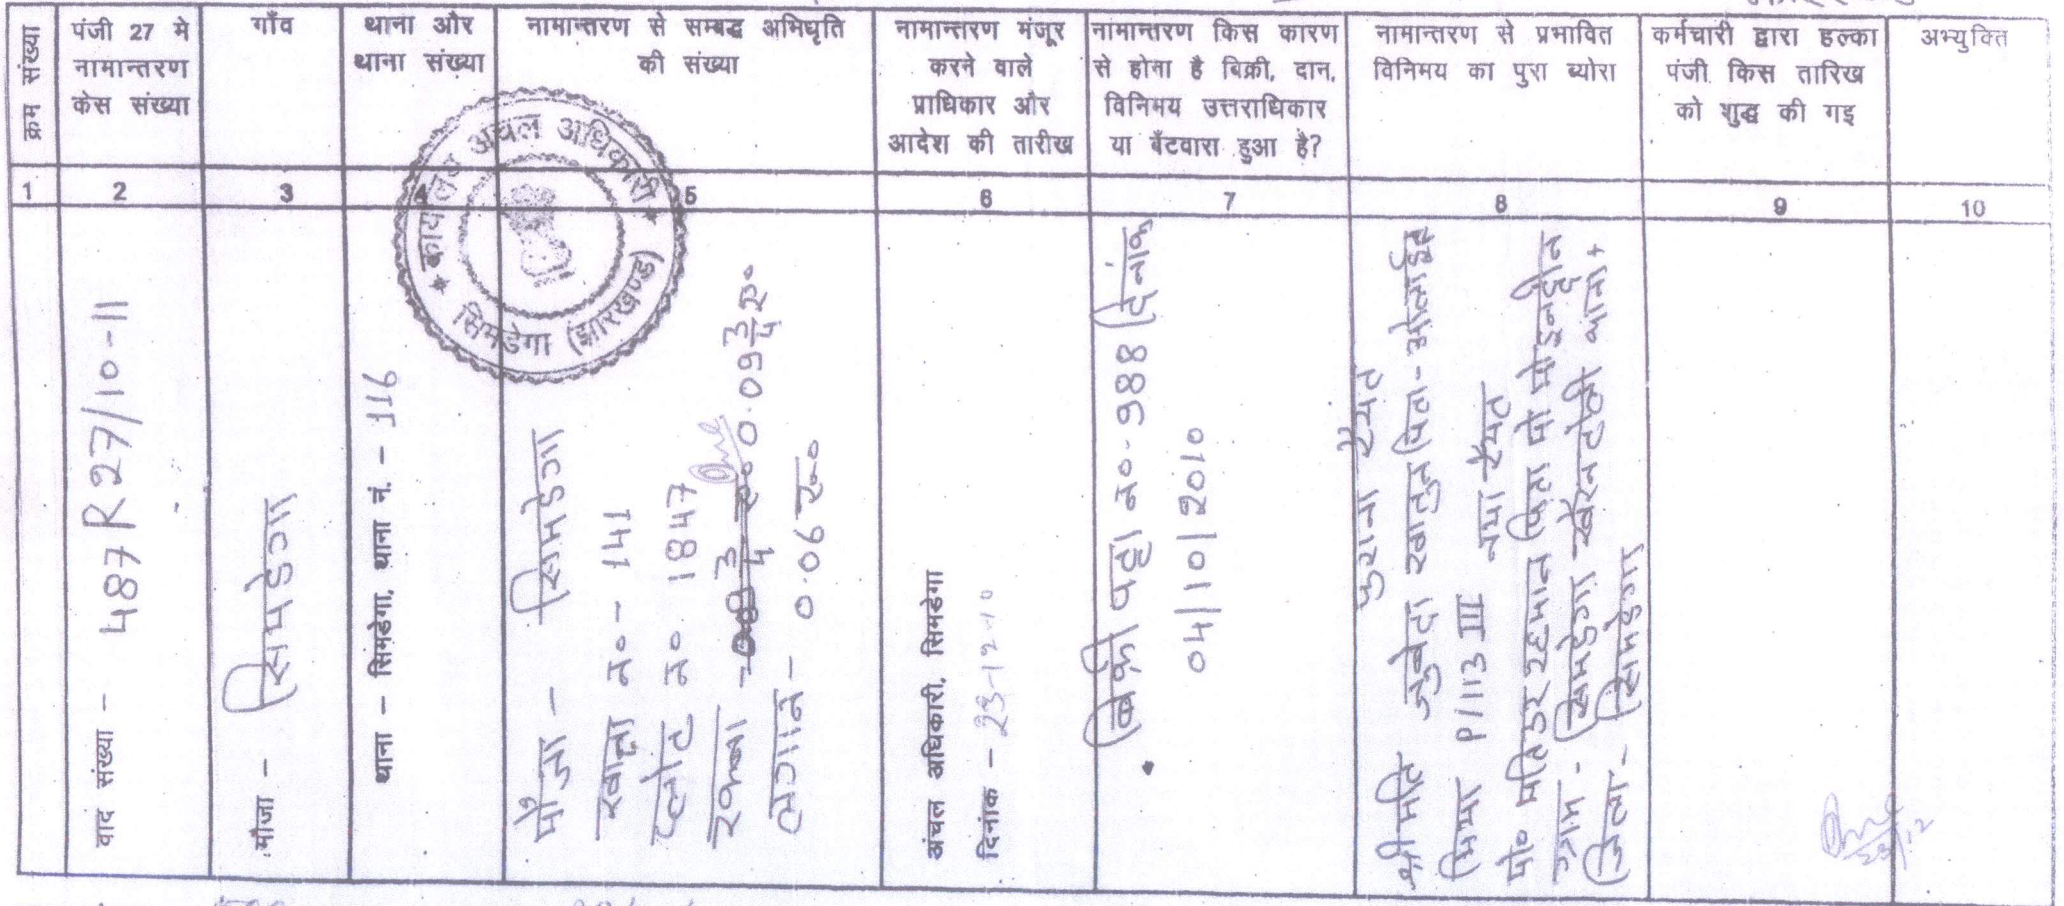 क्रम संख्या
पंजी 27 मे
नामान्तरण
केस संख्या
गाँव
थाना और
थाना संख्या
नामान्तरण से सम्बद्ध अभिधृति
की संख्या
नामान्तरण मंजूर
करने वाले
प्राधिकार और
आदेश की तारीख
नामान्तरण किस कारण
से होना है बिक्री, दान,
विनिमय उत्तराधिकार
या बँटवारा हुआ है?
नामान्तरण से प्रभावित
विनिमय का पुरा ब्योरा
कर्मचारी द्वारा हल्का
पंजी किस तारिख
को शुद्ध की गइ
अभ्युक्ति
1 2 3 4 5 6 7 8 9 10
वाद संख्या - 487 R27/10-11
मौजा - सिमडेगा
थाना - सिमडेगा, थाना नं. - 116
कार्यालय अंचल अधिकारी
सिमडेगा (झारखण्ड)
मौजा - सिमडेगा
खाता न०- 141
प्लौट न० 1847
रकबा - 0.09 3/4 ए०
लगान - 0.06 रू०
अंचल अधिकारी, सिमडेगा
दिनांक - 23-12-10
बिक्री पट्टा न०- 988 दिनांक
04/10/2010
पुराना रैयत
श्रीमति जुबेदा खातुन पिता -
P/113 III नया रैयत
रहमान पिता मो
ग्राम - सिमडेगा खैरन टोली थाना +
जिला - सिमडेगा